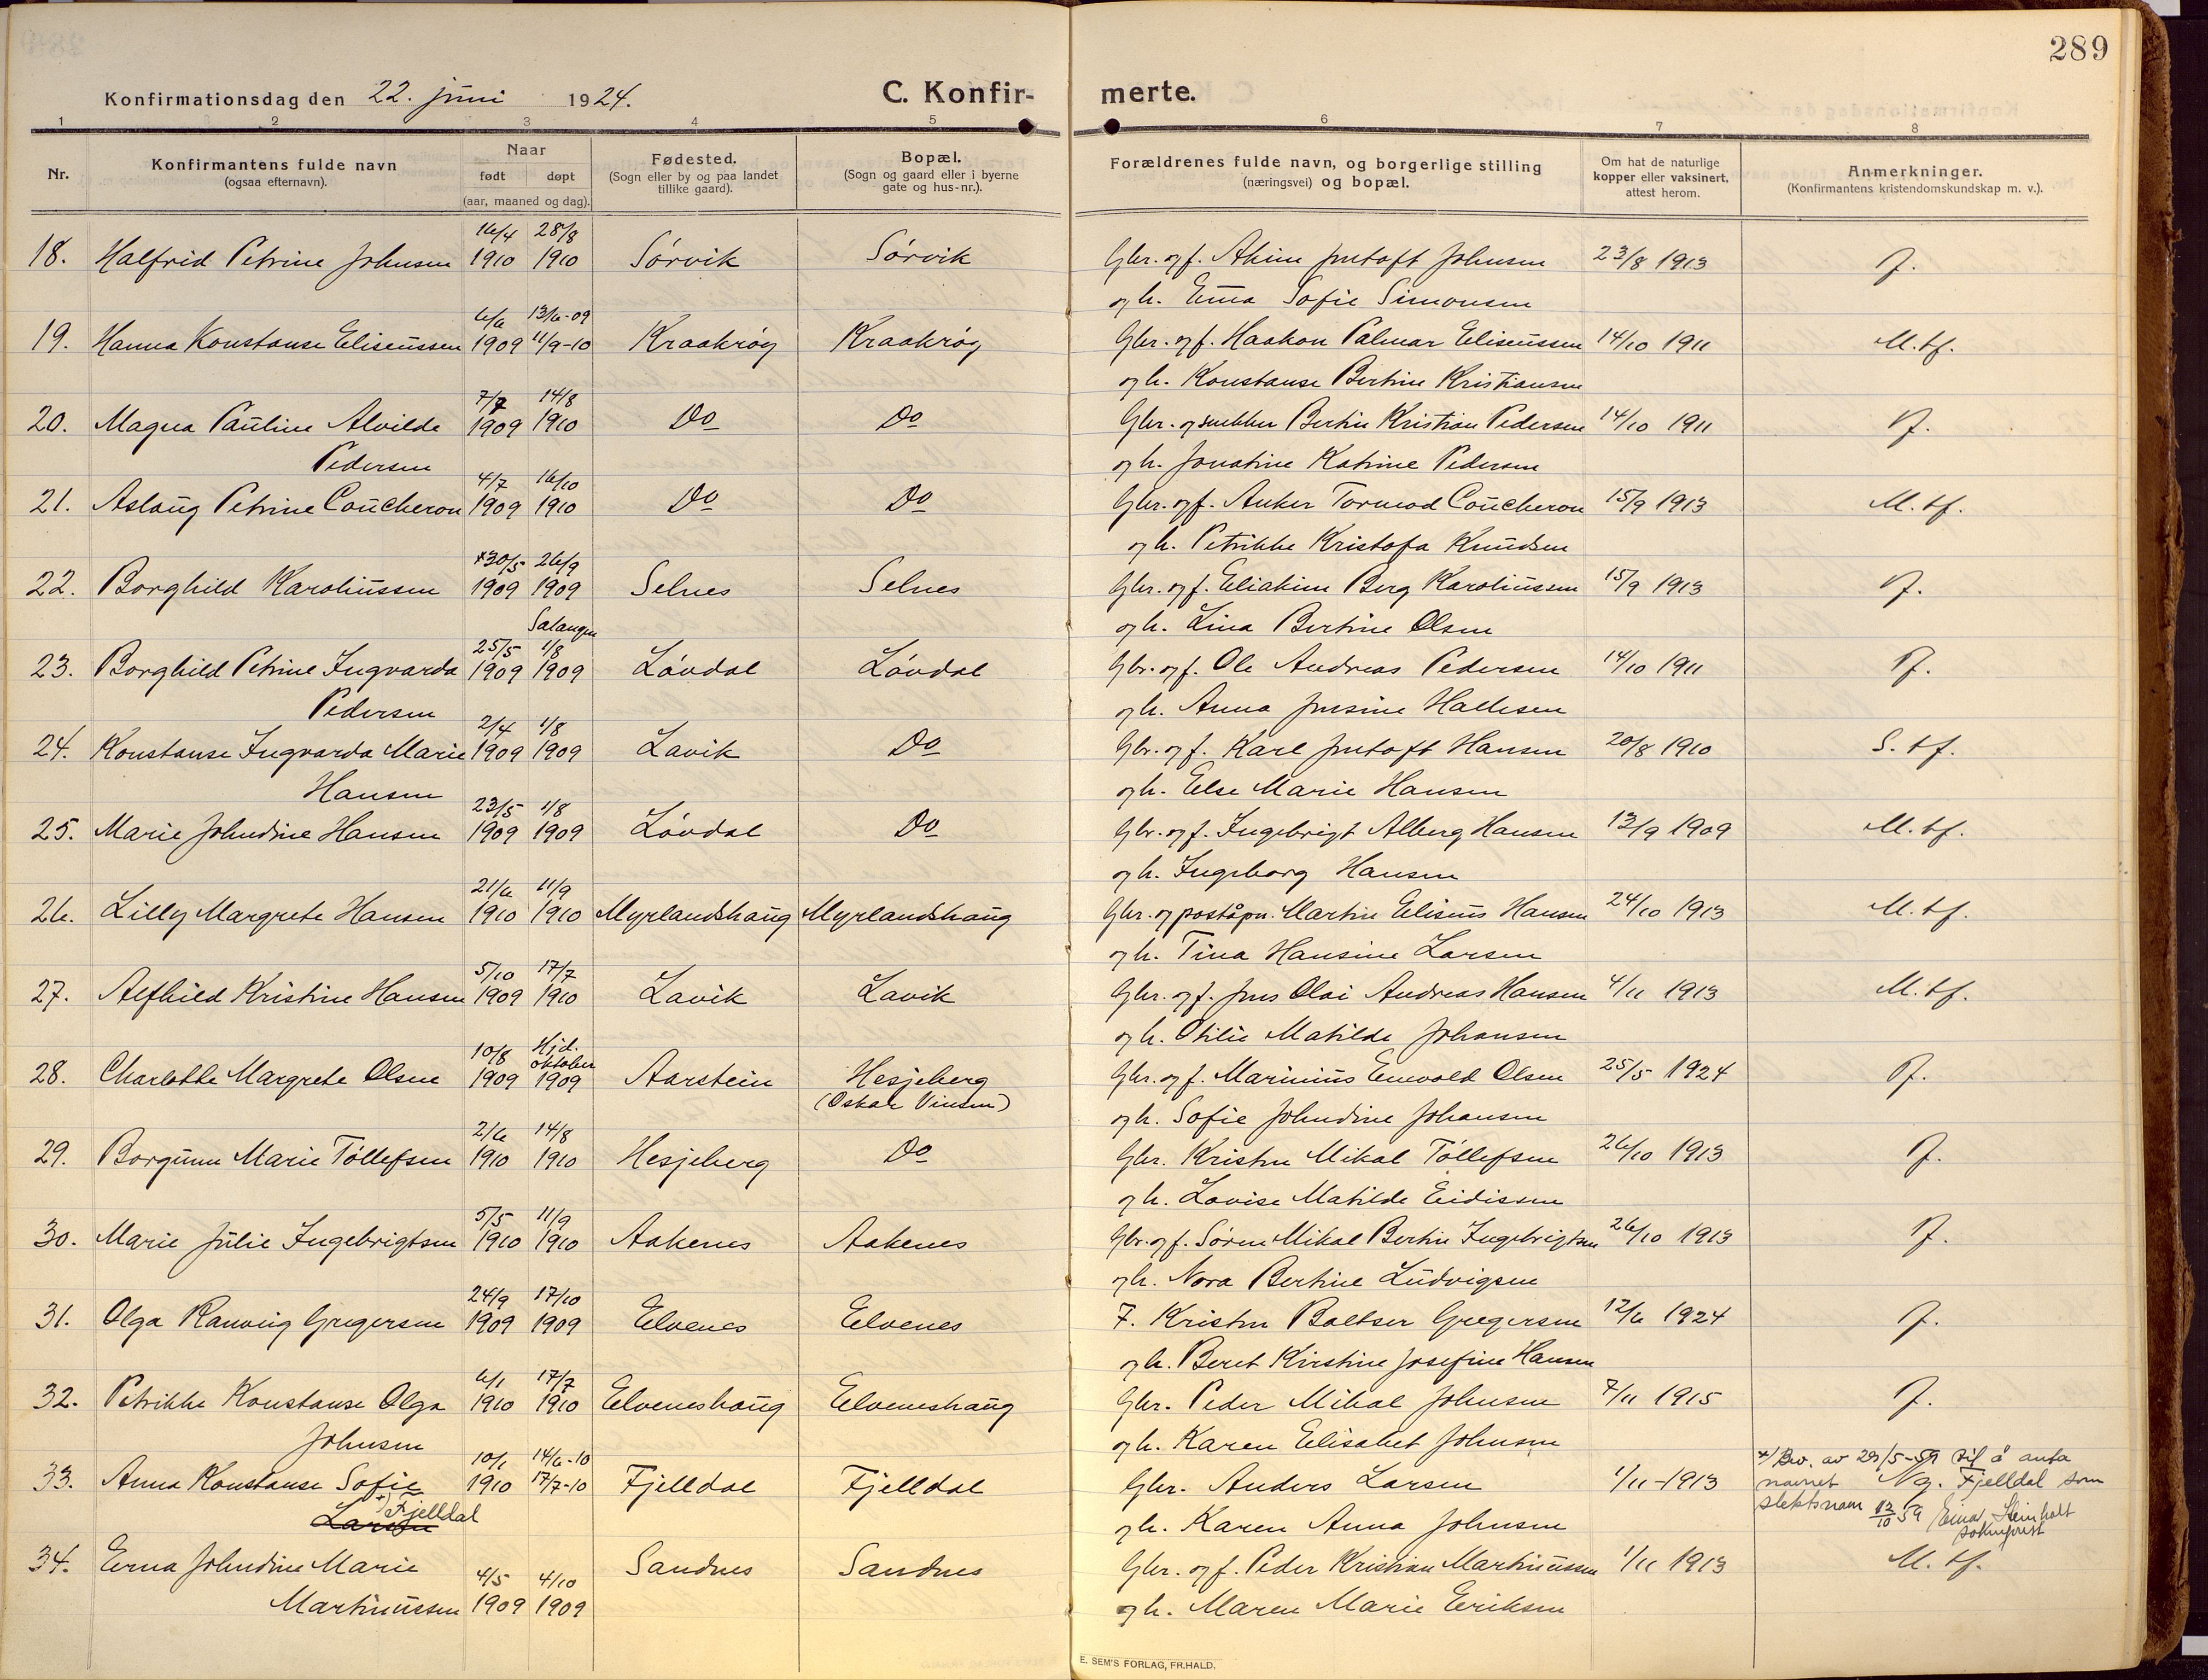 289
Konfirmationsdag den 22. juni 1924.
C. Konfirmerte.
1 2 3 4 5 6 7 8
Nr.
Konfirmantens fulde navn
(ogsaa efternavn).
Naar
født døpt
(aar, maaned og dag).
Fødested.
(Sogn eller by og paa landet
tillike gaard).
Bopæl.
(Sogn og gaard eller i byerne
gate og hus-nr.).
Forældrenes fulde navn, og borgerlige stilling
(næringsvei) og bopæl.
Om hat de naturlige
kopper eller vaksinert,
attest herom.
Anmerkninger.
(Konfirmantens kristendomskundskap m. v.).
16/4 28/8
18. Halfrid Petrine Johnsen 1910 1910 Sørvik Sørvik Gbr. og f. Akim Jentoft Johnsen 23/8 1913
og h. Erna Sofie Simonsen
6/6 13/6-09
19. Hanna Konstanse Eliseussen 1909 11/9-10 Kraakrøy Kraakrøy Gbr. og f. Haakon Palmar Eliseussen 14/10 1911 M. tf.
og h. Konstanse Bertine Kristiansen
7/7 14/8
20. Magna Pauline Alvilde 1909 1910 Do Do Gbr. og snekker Bertin Kristian Pedersen 14/10 1911
Pedersen og h. Jonatine Katrine Pedersen
4/7 16/10
21. Aslaug Petrine Coucheron 1909 1910 Do Do Gbr. og f. Anker Tormod Coucheron 15/9 1913 M. tf.
og h. Petrikke Kristofa Knudsen
*30/5 26/9
22. Borghild Karoliussen 1909 1909 Selnes Selnes Gbr. og f. Eliakim Berg Karoliussen 15/9 1913
Salangen og h. Lina Bertine Olsen
25/5 1/8
23. Borghild Petrine Ingvarda 1909 1909 Løvdal Løvdal Gbr. og f. Ole Andreas Pedersen 14/10 1911
Pedersen og h. Anna Jensine Hallesen
2/4 1/8
24. Konstanse Ingvarda Marie 1909 1909 Lavik Do Gbr. og f. Karl Jentoft Hansen 20/8 1910 S. tf.
Hansen og h. Else Marie Hansen
23/5 1/8
25. Marie Johndine Hansen 1909 1909 Løvdal Do Gbr. og f. Ingebrigt Alberg Hansen 13/9 1909 M. tf.
og h. Ingeborg Hansen
21/6 11/9
26. Lilly Margrete Hansen 1910 1910 Myrlandshaug Myrlandshaug Gbr. og poståpn. Martin Eliseus Hansen 24/10 1913 M. tf.
og h. Tina Hansine Larsen
5/10 17/7
27. Alfhild Kristine Hansen 1909 1910 Lavik Lavik Gbr. og f. Jens Olai Andreas Hansen 4/11 1913 M. tf.
og h. Otilie Matilde Johansen
10/8 Hjd. oktober
28. Charlotte Margrete Olsen 1909 1909 Aarstein Hesjeberg Gbr. og f. Marinius Emvald Olsen 25/5 1924
(Oskar Vinsen) og h. Sofie Johndine Johansen
2/6 14/8
29. Borgunn Marie Tøllefsen 1910 1910 Hesjeberg Do Gbr. Kristen Mikal Tøllefsen 26/10 1913
og h. Lovise Matilde Eidissen
5/5 11/9
30. Marie Julie Ingebrigtsen 1910 1910 Aakenes Aakenes Gbr. og f. Søren Mikal Bertin Ingebrigtsen 26/10 1913
og h. Nora Bertine Ludvigsen
24/9 17/10
31. Olga Ranveig Gregersen 1909 1909 Elvenes Elvenes F. Kristen Baltser Gregersen 12/6 1924
og h. Beret Kirstine Josefine Hansen
6/1 17/7
32. Petrikke Konstanse Olga 1910 1910 Elveneshaug Elveneshaug Gbr. Peder Mikal Johnsen 7/11 1915
Johnsen og h. Karen Elisabet Johnsen
10/1 14/6-10
33. Anna Konstanse Sofie 1910 17/7-10 Fjelldal Fjelldal Gbr. Anders Larsen 1/11-1913
+) Fjelldal
Larsen og h. Karen Anna Johnsen
*/ Bev. av 29/5-59 til å anta
navnet Fjelldal som
slektsnam 12/10 59 Einar Steinholt
sokneprest
34. Erna Johndine Marie 4/5 4/10 Sandnes Sandnes Gbr. og f. Peder Kristian Martinussen 1/11 1913 M. tf.
Martinussen 1909 1909 og h. Maren Marie Eriksen
E. SEM'S FORLAG, FR.HALD.